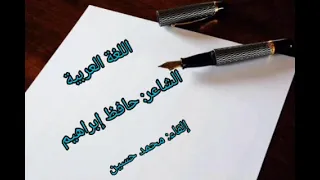 اللغة العربية
الشاعر: حافظ إبراهيم
إلقاء: محمد حسين